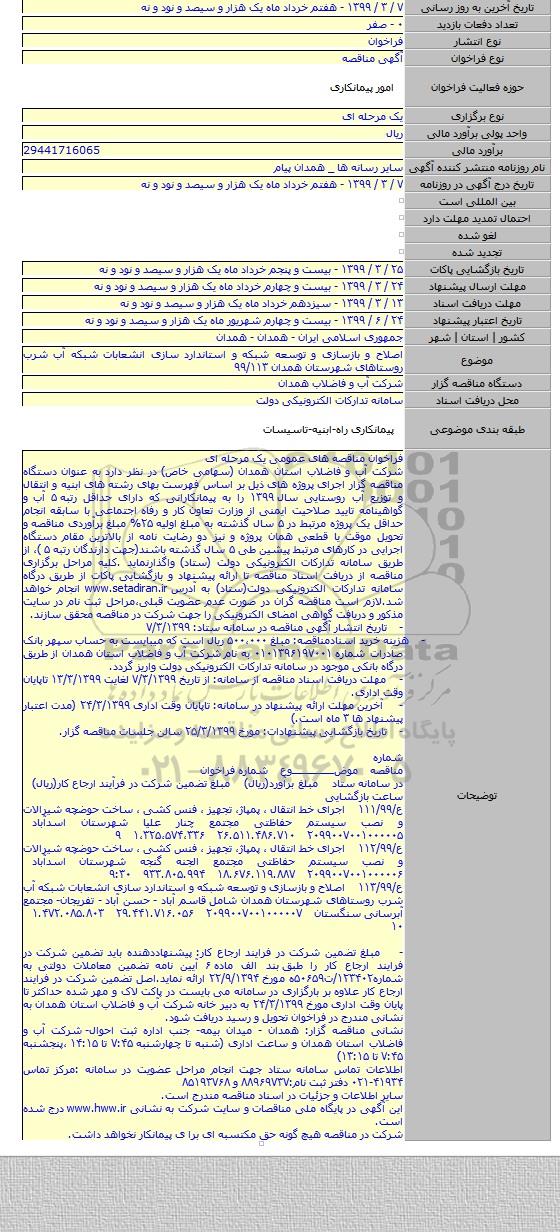 تاریخ آخرین به روز رسانی ۷ / ۳ / ۱۳۹۹ - هفتم خرداد ماه یک هزار و سیصد و نود و نه
تعداد دفعات بازدید ۰ - صفر
نوع انتشار فراخوان
نوع فراخوان آگهی مناقصه
حوزه فعالیت فراخوان امور پیمانکاری
نوع برگزاری یک مرحله ای
واحد پولی برآورد مالی ریال
برآورد مالی 29441716065
نام روزنامه منتشر کننده آگهی سایر رسانه ها _ همدان پیام
تاریخ درج آگهی در روزنامه ۷ / ۳ / ۱۳۹۹ - هفتم خرداد ماه یک هزار و سیصد و نود و نه
بین المللی است
احتمال تمدید مهلت دارد
لغو شده
تجدید شده
تاریخ بازگشایی پاکات ۲۵ / ۳ / ۱۳۹۹ - بیست و پنجم خرداد ماه یک هزار و سیصد و نود و نه
مهلت ارسال پیشنهاد ۲۴ / ۳ / ۱۳۹۹ - بیست و چهارم خرداد ماه یک هزار و سیصد و نود و نه
مهلت دریافت اسناد ۱۳ / ۳ / ۱۳۹۹ - سیزدهم خرداد ماه یک هزار و سیصد و نود و نه
تاریخ اعتبار پیشنهاد ۲۴ / ۶ / ۱۳۹۹ - بیست و چهارم شهریور ماه یک هزار و سیصد و نود و نه
کشور | استان | شهر جمهوری اسلامی ایران - همدان - همدان
موضوع اصلاح و بازسازی و توسعه شبکه و استاندارد سازی انشعابات شبکه آب شرب
روستاهای شهرستان همدان ۹۹/۱۱۳
دستگاه مناقصه گزار شرکت آب و فاضلاب همدان
محل دریافت اسناد سامانه تدارکات الکترونیکی دولت
طبقه بندی موضوعی پیمانکاری راه-ابنیه-تاسیسات
توضیحات
فراخوان مناقصه های عمومی یک مرحله ای
شرکت آب و فاضلاب استان همدان (سهامی خاص) در نظر دارد به عنوان دستگاه
مناقصه گزار اجرای پروژه های ذیل بر اساس فهرست بهای رشته های ابنیه و انتقال
و توزیع آب روستایی سال ۱۳۹۹ را به پیمانکارانی که دارای حداقل رتبه ۵ آب و
گواهینامه تایید صلاحیت ایمنی از وزارت تعاون کار و رفاه اجتماعی با سابقه انجام
حداقل یک پروژه مرتبط در ۵ سال گذشته به مبلغ اولیه ۲۵% مبلغ برآوردی مناقصه و
تحویل موقت یا قطعی همان پروژه و نیز دو رضایت نامه از بالاترین مقام دستگاه
اجرایی در کارهای مرتبط پیشین طی ۵ سال گذشته باشند(جهت دارندگان رتبه ۵ )، از
طریق سامانه تدارکات الکترونیکی دولت (ستاد) واگذارنماید .کلیه مراحل برگزاری
مناقصه از دریافت اسناد مناقصه تا ارائه پیشنهاد و بازگشایی پاکات از طریق درگاه
سامانه تدارکات الکترونیکی دولت(ستاد) به آدرس www.setadiran.ir انجام خواهد
شد.لازم است مناقصه گران در صورت عدم عضویت قبلی،مراحل ثبت نام در سایت
مذکور و دریافت گواهی امضای الکترونیکی را جهت شرکت در مناقصه محقق سازند.
- تاریخ انتشار آگهی مناقصه در سامانه ستاد: ۷/۳/۱۳۹۹
- هزینه خرید اسنادمناقصه: مبلغ ۵۰۰،۰۰۰ ریال است که میبایست به حساب سپهر بانک
صادرات شماره ۰۱۰۱۳۹۶۱۹۷۰۰۱ به نام شرکت آب و فاضلاب استان همدان از طریق
درگاه بانکی موجود در سامانه تدارکات الکترونیکی دولت واریز گردد.
- مهلت دریافت اسناد مناقصه از سامانه: از تاریخ ۷/۳/۱۳۹۹ لغایت ۱۳/۳/۱۳۹۹ تاپایان
وقت اداری.
- آخرین مهلت ارائه پیشنهاد در سامانه: تاپایان وقت اداری ۲۴/۳/۱۳۹۹ (مدت اعتبار
پیشنهاد ها ۳ ماه است.)
- تاریخ بازگشایی پیشنهادات: مورخ ۲۵/۳/۱۳۹۹ سالن جلسات مناقصه گزار.
شماره
مناقصه موضـــــــــوع شماره فراخوان
در سامانه ستاد مبلغ برآورد(ریال) مبلغ تضمین شرکت در فرآیند ارجاع کار(ریال)
ساعت بازگشایی
ع/۱۱۱/۹۹ اجرای خط انتقال ، پمپاژ، تجهیز ، فنس کشی ، ساخت حوضچه شیرالات
و نصب سیستم حفاظتی مجتمع چنار علیا شهرستان اسدآباد
۲۰۹۹۰۰۷۰۰۱۰۰۰۰۰۵ ۲۶.۵۱۱.۴۸۶.۷۱۰ ۱.۳۲۵.۵۷۴.۳۳۶ ۹
ع/۱۱۲/۹۹ اجرای خط انتقال ، پمپاژ، تجهیز ، فنس کشی ، ساخت حوضچه شیرالات
و نصب سیستم حفاظتی مجتمع الجنه گنجه شهرستان اسدآباد
۲۰۹۹۰۰۷۰۰۱۰۰۰۰۰۶ ۱۸.۶۷۶.۱۱۹.۸۸۷ ۹۳۳.۸۰۵.۹۹۴ ۹:۳۰
ع/۱۱۳/۹۹ اصلاح و بازسازی و توسعه شبکه و استاندارد سازی انشعابات شبکه آب
شرب روستاهای شهرستان همدان شامل قاسم آباد - حسن آباد - تفریجان- مجتمع
آبرسانی سنگستان ۲۰۹۹۰۰۷۰۰۱۰۰۰۰۰۷ ۲۹.۴۴۱.۷۱۶.۰۵۶ ۱.۴۷۲.۰۸۵.۸۰۳
۱۰
- مبلغ تضمین شرکت در فرایند ارجاع کار: پیشنهاددهنده باید تضمین شرکت در
فرایند ارجاع کار را طبق بند الف ماده ۶ آیین نامه تضمین معاملات دولتی به
شماره۱۲۳۴۰۲/ت۵۰۶۵۹ه مورخ ۲۲/۹/۱۳۹۴ ارائه نماید.اصل تضمین شرکت در فرایند
ارجاع کار علاوه بر بارگزاری در سامانه می بایست در پاکت لاک و مهر شده حداکثر تا
پایان وقت اداری مورخ ۲۴/۳/۱۳۹۹ به دبیر خانه شرکت آب و فاضلاب استان همدان به
نشانی مندرج در فراخوان تحویل و رسید دریافت شود.
نشانی مناقصه گزار: همدان - میدان بیمه- جنب اداره ثبت احوال- شرکت آب و
فاضلاب استان همدان و ساعت اداری (شنبه تا چهارشنبه ۷:۴۵ تا ۱۴:۱۵ ،پنجشنبه
۷:۴۵ تا ۱۳:۱۵)
اطلاعات تماس سامانه ستاد جهت انجام مراحل عضویت در سامانه :مرکز تماس
۰۲۱-۴۱۹۳۴ دفتر ثبت نام:۸۸۹۶۹۷۳۷ و ۸۵۱۹۳۷۶۸
سایر اطلاعات و جزئیات در اسناد مناقصه مندرج است.
این آگهی در پایگاه ملی مناقصات و سایت شرکت به نشانی www.hww.ir درج شده
است.
شرکت در مناقصه هیچ گونه حق مکتسبه ای برا ی پیمانکار نخواهد داشت.